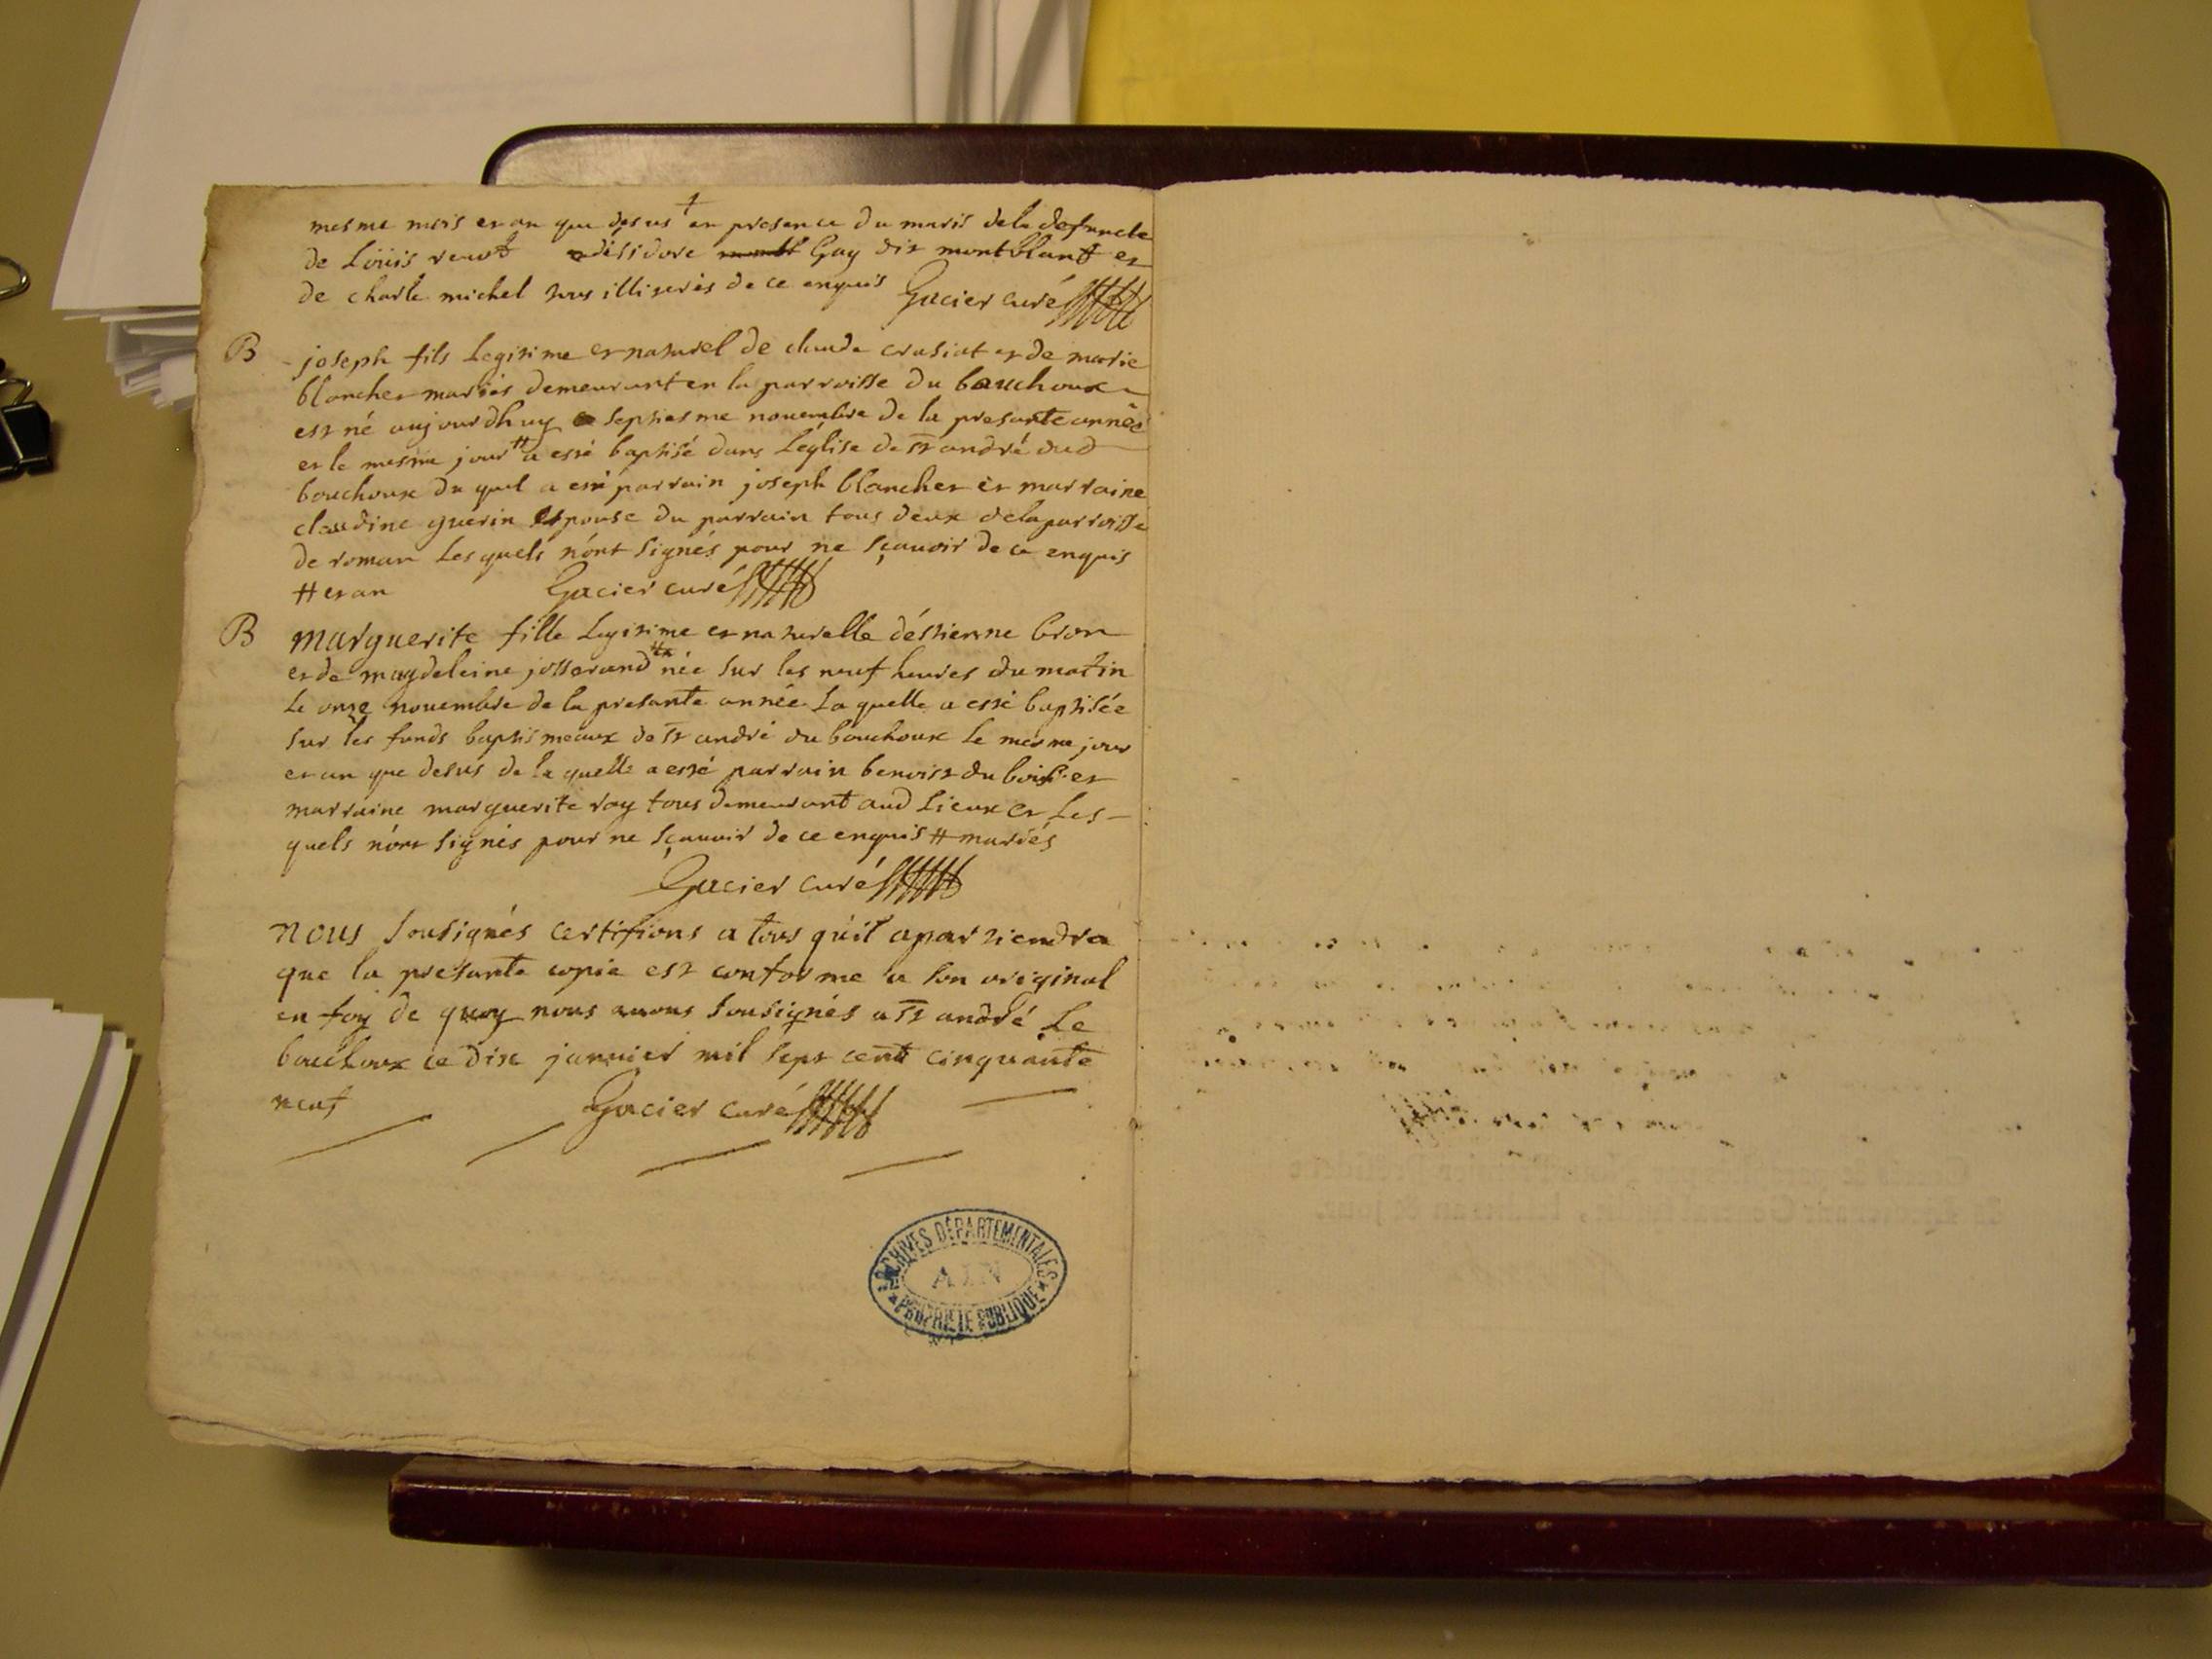 mesme mois et an que desus en presence du maris dela defuncte
de Loüis revost disidore Guy dit montblant et
de charle michel tous illiterés de ce enquis Gacier curé
B joseph fils Legitime et naturel de claude crusiat et de marie
blanchet mariés demeurant en la parroisse du bouchoux
est né aujourdhuy septiesme novembre de la presante année
et le mesme jour # a esté baptisé dans Léglise de St andré dud
bouchoux du quel a esté parrain joseph blanchet et marraine
claudine guerin Espouse du parrain tous deux dela parroisse
de roman Lesquels n'ont signés pour ne sçavoir de ce enquis
# et an Gacier curé
B marguerite fille Legitime et naturelle déstienne bron
et de magdeleine josserand # née sur les neuf heures du matin
Le onze novembre de la presante année La quelle a esté baptisée
sur les fonds baptismeaux de St andré du bouchoux Le mesme jour
et an que desus de la quelle a esté parrain benoist du bois et
marraine marguerite ray tous demeurant aud Lieux et Les-
quels n'ont signés pour ne sçavoir de ce enquis # mariés
Gacier curé
nous sousignés certifions a tous qu'il apartiendra
que la presante copie est conforme a son original
en foy de quoy nous avons sousignés a St andré Le
bouchoux ce dix janvier mil sept cent cinquante
neuf Gacier curé
ARCHIVES DÉPARTEMENTALES
AIN
PROPRIÉTÉ PUBLIQUE